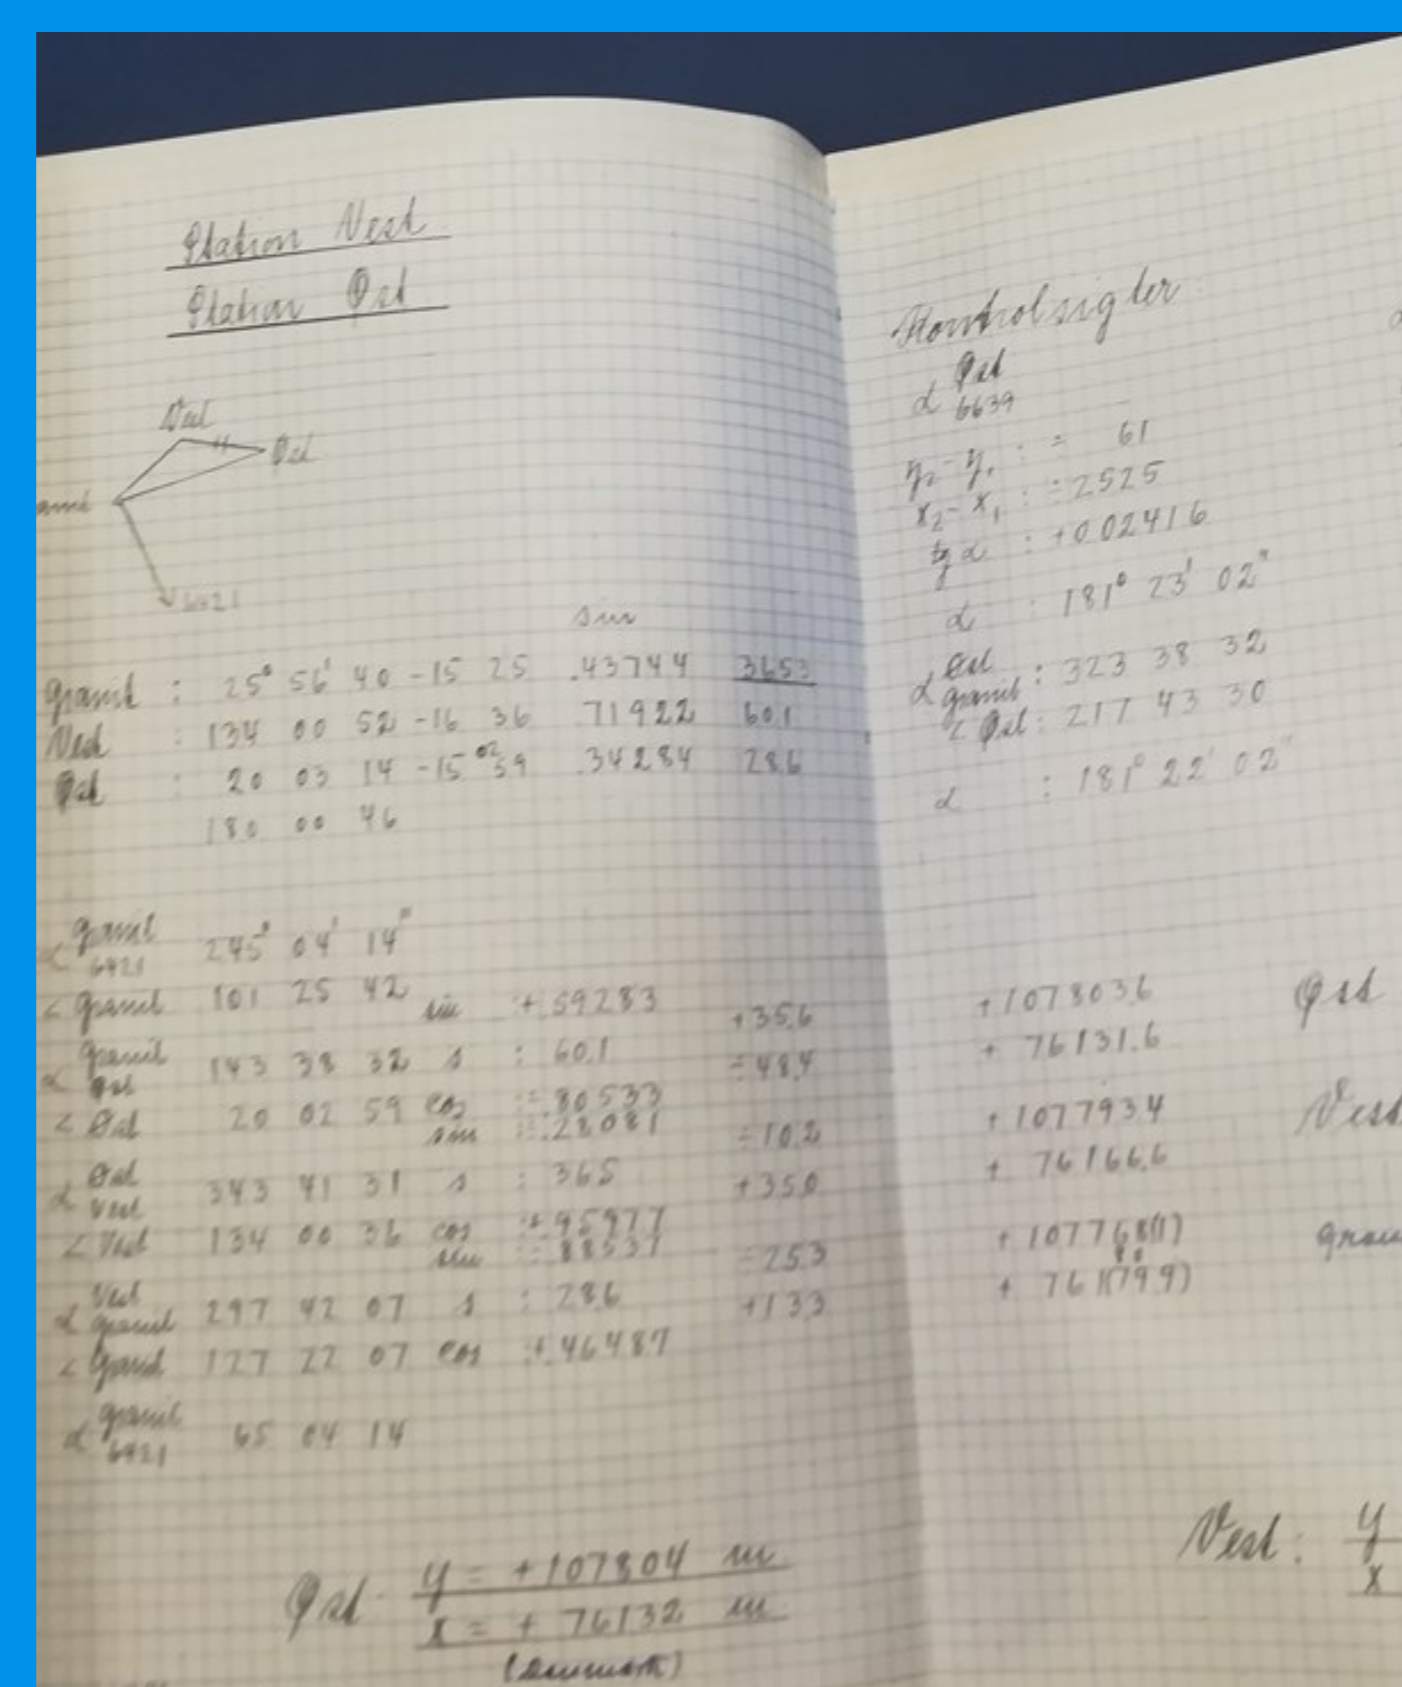 Station Vest
Station Øst
Vest
Øst
6421
sin
Granit : 25° 56' 40 -15 25 .43744 3653
Vest : 134 00 52 -16 36 .71922 60.1
Øst : 20 03 14 -15 02 59 .34284 28.6
180 00 46
α Granit 6421 245° 04' 14"
< Granit 101 25 42 sin :+.59283 +35.6
α Granit Øst 143 38 32 s : 60.1 ÷48.4
< Øst 20 02 59 cos :÷.80533
sin :÷.28081 ÷10.2
α Øst Vest 343 41 31 s : 36.5 +35.0
< Vest 134 00 36 cos :+.95977
sin :÷.88531 ÷25.3
α Vest Granit 297 42 07 s : 28.6 +13.3
< Granit 127 22 07 cos :+.46487
α Granit 6421 65 04 14
Øst y = +107804 m
x = + 76132 m
(Danmark)
Kontrolsigter
α Øst 6639
y₂-y₁ : ÷ 61
x₂-x₁ : ÷2525
tg α : +0.02416
α : 181° 23' 02"
α Øst Granit : 323 38 32
< Øst : 217 43 30
α : 181° 22' 02"
+107803.6 Øst
+ 76131.6
+107793.4 Vest
+ 76166.6
+107768(1)
80
+ 761(79.9)
Vest: y
x